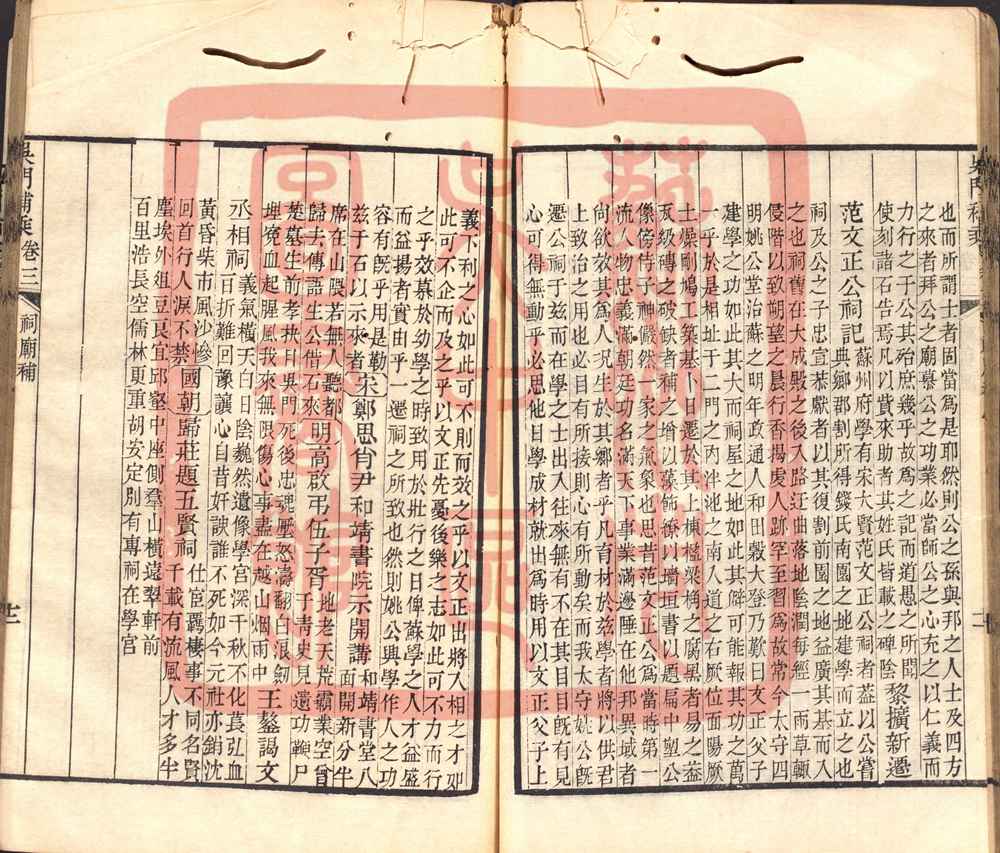 也而所謂士者固當為是耶然則公之孫與邦之人士及四方
之來者拜公之廟慕公之功業必當師公之心充之以仁義而
力行之于公其殆庶幾乎故為之記而道愚之所聞
使刻諸石告焉凡以貲來助者其姓氏皆載之碑陰
黎擴新遷
范文正公祠記
蘇州府學有宋大賢范文正公祠者葢以公嘗
典鄉郡割所得錢氏南園之地建學而立之也
祠及公之子忠宣恭獻者以其復割前園之地益廣其基而入
之也祠舊在大成殿之後入路迂曲落地陰濕每經一雨草輙
侵階以致朔望之晨行香揭虔人跡罕至習為故常今太守四
明姚公堂治蘇之明年政通人和田穀大登乃歎曰文正父子
建學之功如此其大而祠屋之地如此其僻可能報其功之萬
一乎於是相址于二門之內泮池之南人道之右厥位面陽厥
土燥剛鳩工築基卜日遷於其上棟楹梁桷之腐黑者易之葢
瓦級磚之破缺者補之增以藻飾繚以墻垣書以題扁中塑公
像傍侍子神儼然一家之氣象也思昔范文正公為當時第一
流人物忠義滿朝廷功名滿天下事業滿邊陲在他邦異域者
尚欲效其為人况生於其鄉者乎凡育材於兹學者將以供君
上致治之用也必目有所接則心有所動矣而我太守姚公旣
遷公祠于兹而在學之士出入往來無有不在其目目旣有見
心可得無動乎必思他日學成材就出為時用以文正父子上
義下利之心如此可不則而效之乎以文正出將入相之才如
此可不企而及之乎以文正先憂後樂之志如此可不力而行
之乎效慕於幼學之時致用於壯行之日俾蘇學之人才益盛
而益揚者實由乎一遷祠之所致也然則姚公興學作人之功
容有旣乎用是勒
兹于石以示來者
宋鄭思肖尹和靖書院示開講
和靖書堂八
面開新分半
席在山隈若無人聽都
歸去傳語生公借石來
明高啟弔伍子胥
地老天荒霸業空曾
于青史見遺功鞭尸
楚墓生前孝抉目吳門死後忠魂壓怒濤翻白浪劍
埋寃血起腥風我來無限傷心事盡在越山烟雨中
王鏊謁文
丞相祠
義氣橫天白日陰巍然遺像學宮深千秋不化萇弘血
百折難回豫讓心自昔奸諛誰不死如今元社亦銷沈
黃昏柴市風沙慘
回首行人淚不禁
國朝歸莊題五賢祠
仕宦羇棲事不同名賢
千載有流風人才多半
塵埃外俎豆長宜邱壑中座側羣山橫遠翠軒前
百里浩長空儒林更重胡安定別有專祠在學宮
吳門補乘
卷三
祠廟補